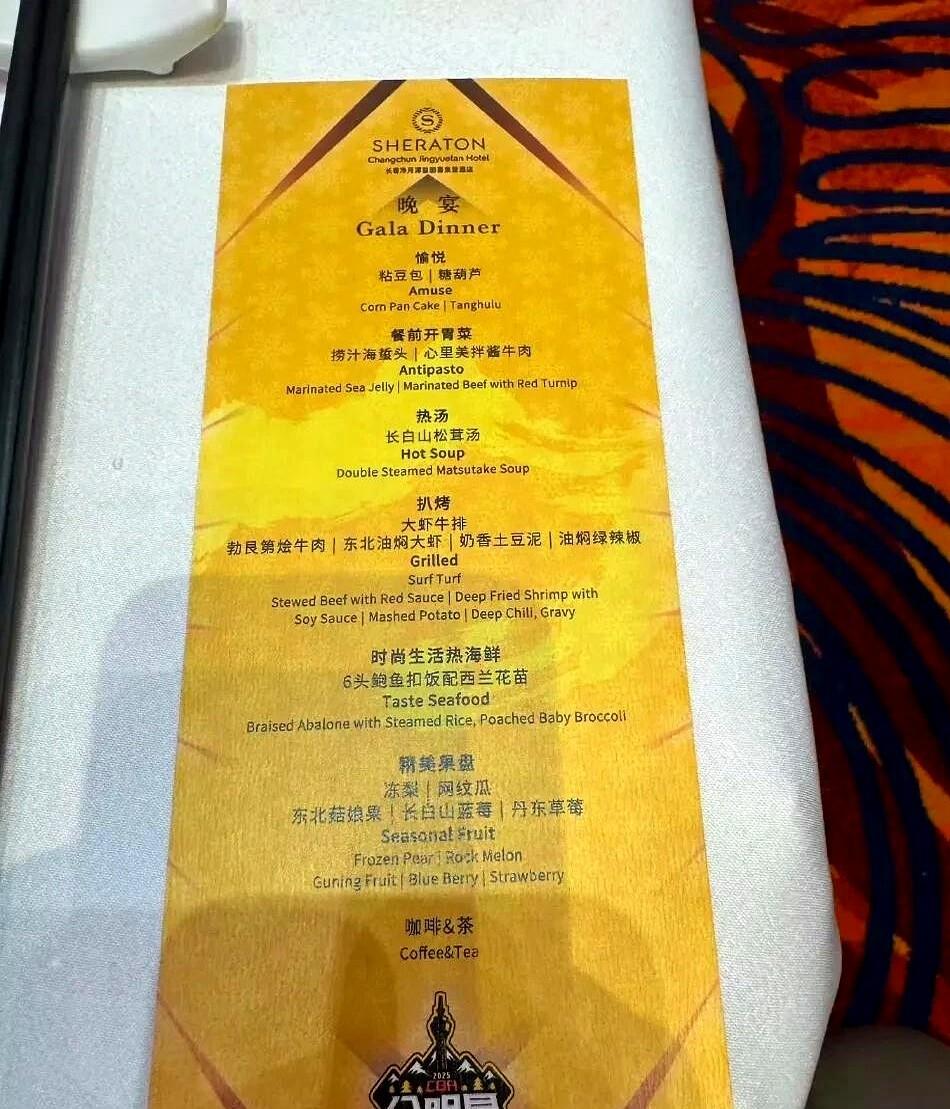 S
SHERATON
Changchun Jingyuetan Hotel
长春净月潭益田喜来登酒店
晚宴
Gala Dinner
愉悦
粘豆包 | 糖葫芦
Amuse
Corn Pan Cake | Tanghulu
餐前开胃菜
捞汁海蜇头 | 心里美拌酱牛肉
Antipasto
Marinated Sea Jelly | Marinated Beef with Red Turnip
热汤
长白山松茸汤
Hot Soup
Double Steamed Matsutake Soup
扒烤
大虾牛排
勃艮第烩牛肉 | 东北油焖大虾 | 奶香土豆泥 | 油焖绿辣椒
Grilled
Surf Turf
Stewed Beef with Red Sauce | Deep Fried Shrimp with
Soy Sauce | Mashed Potato | Deep Chili, Gravy
时尚生活热海鲜
6头鲍鱼扣饭配西兰花苗
Taste Seafood
Braised Abalone with Steamed Rice, Poached Baby Broccoli
精美果盘
冻梨 | 网纹瓜
东北菇娘果 | 长白山蓝莓 | 丹东草莓
Seasonal Fruit
Frozen Pear | Rock Melon
Guning Fruit | Blue Berry | Strawberry
咖啡&茶
Coffee&Tea
2025
CBA